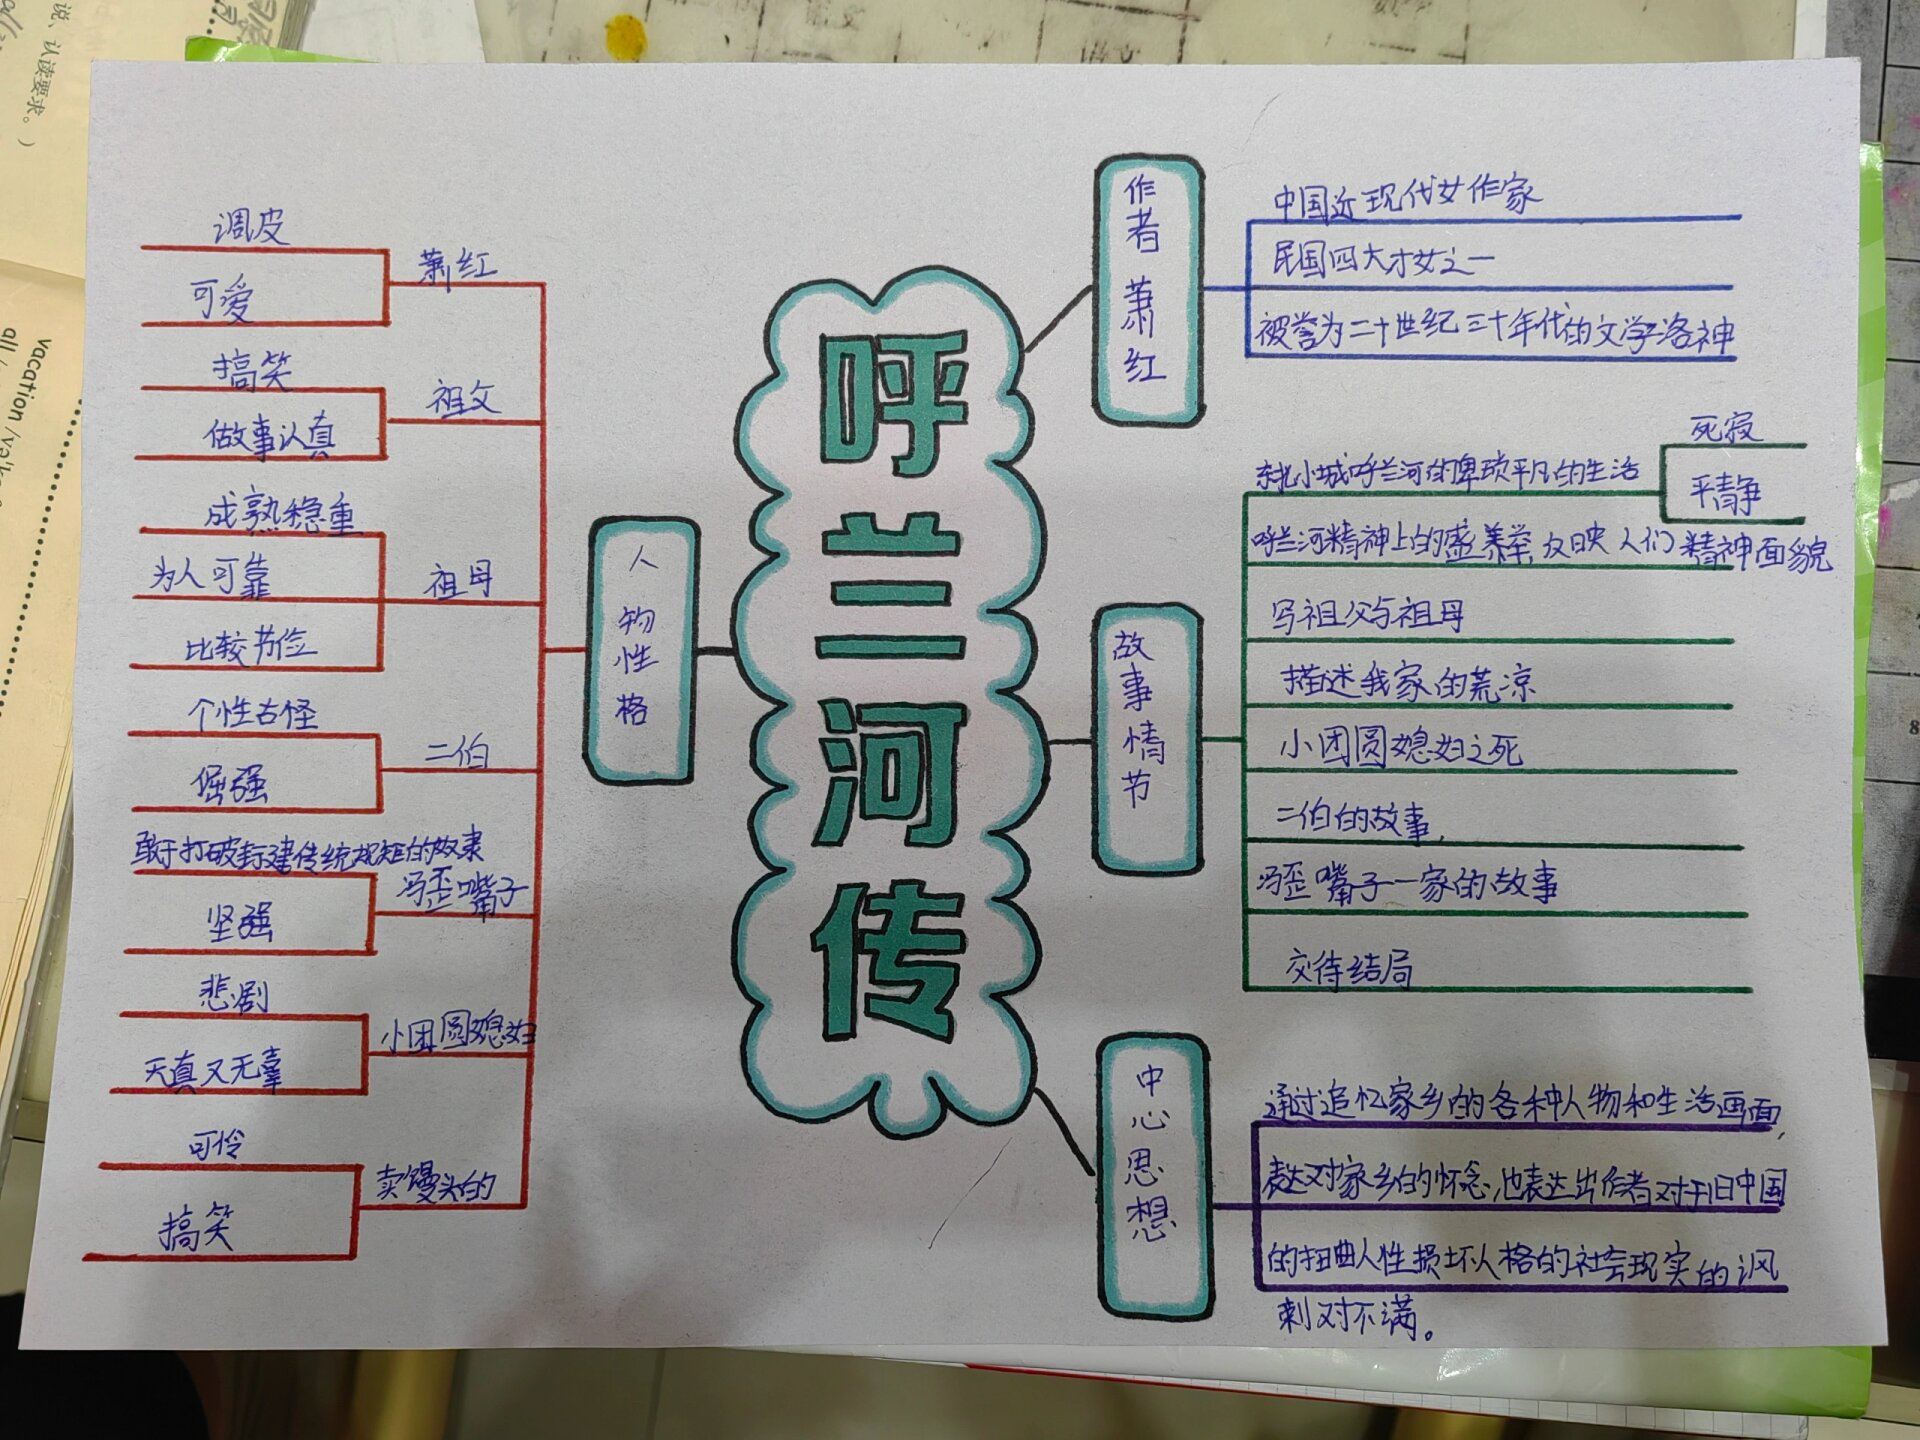 呼兰河传
作者 萧红
中国近现代女作家
民国四大才女之一
被誉为二十世纪三十年代的文学洛神
故事情节
东北小城呼兰河的卑琐平凡的生活
死寂
平静
呼兰河精神上的盛举,反映人们精神面貌
写祖父与祖母
描述我家的荒凉
小团圆媳妇之死
二伯的故事
冯歪嘴子一家的故事
交待结局
中心思想
通过追忆家乡的各种人物和生活画面,
表达对家乡的怀念,也表达出作者对于旧中国
的扭曲人性损坏人格的社会现实的讽
刺对不满。
人物性格
萧红
调皮
可爱
祖父
搞笑
做事认真
祖母
成熟稳重
为人可靠
比较节俭
二伯
个性古怪
倔强
冯歪嘴子
敢于打破封建传统规矩的奴隶
坚强
小团圆媳妇
悲剧
天真又无辜
卖馒头的
可怜
搞笑
说、认读要求。)
vacation